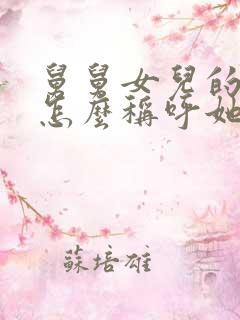 舅舅女兒的
怎麼稱呼她
蘇培雄